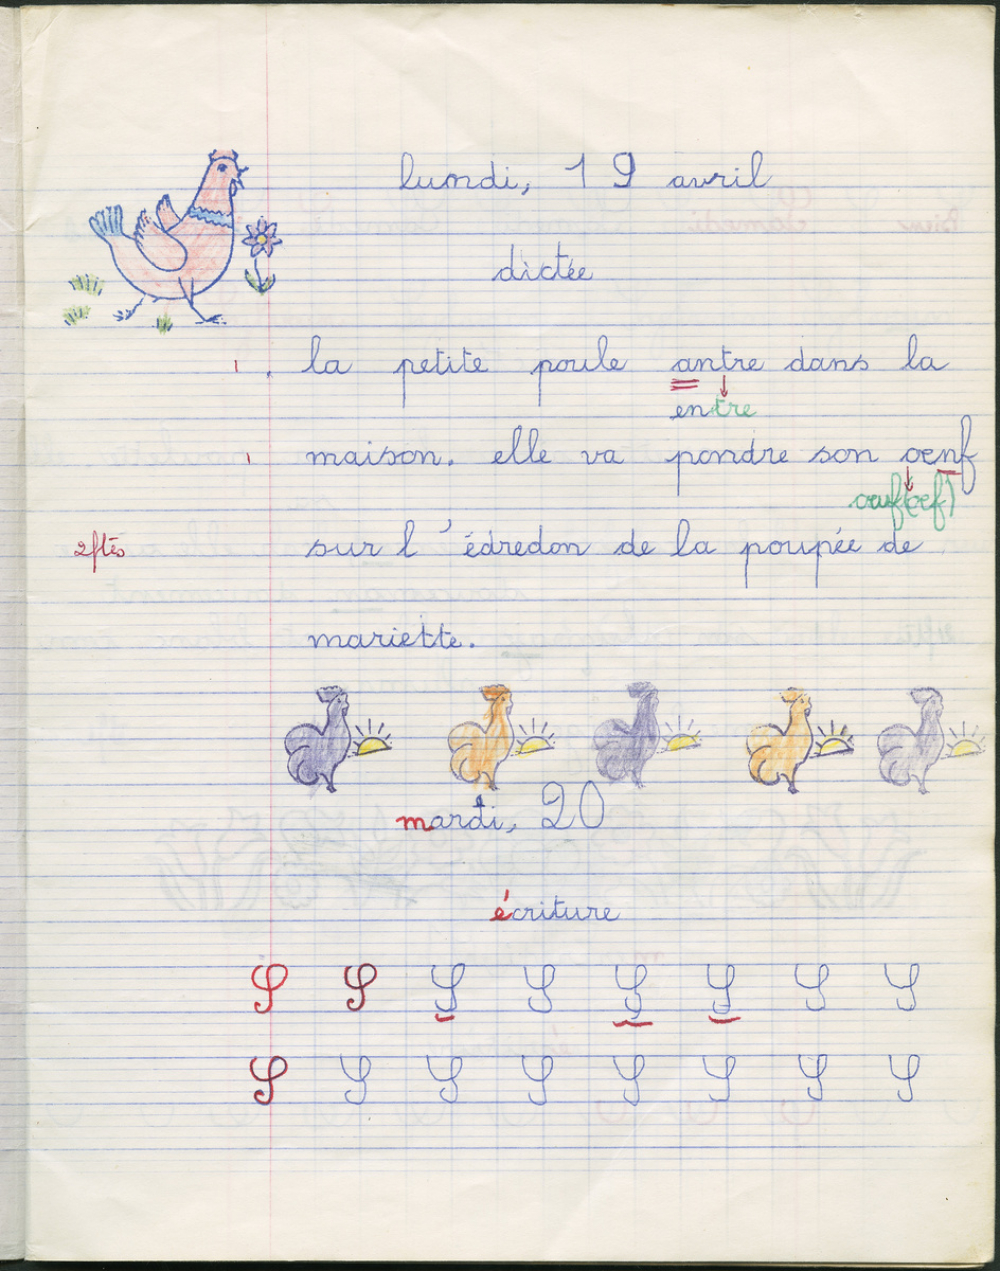 lundi, 19 avril
dictée
1 . la petite poule antre dans la
entre
1 maison. elle va pondre son oenf
oeuf(oef)
2 ftes sur l'édredon de la poupée de
mariette.
mardi, 20
écriture
S S S S S S S S
S S S S S S S S